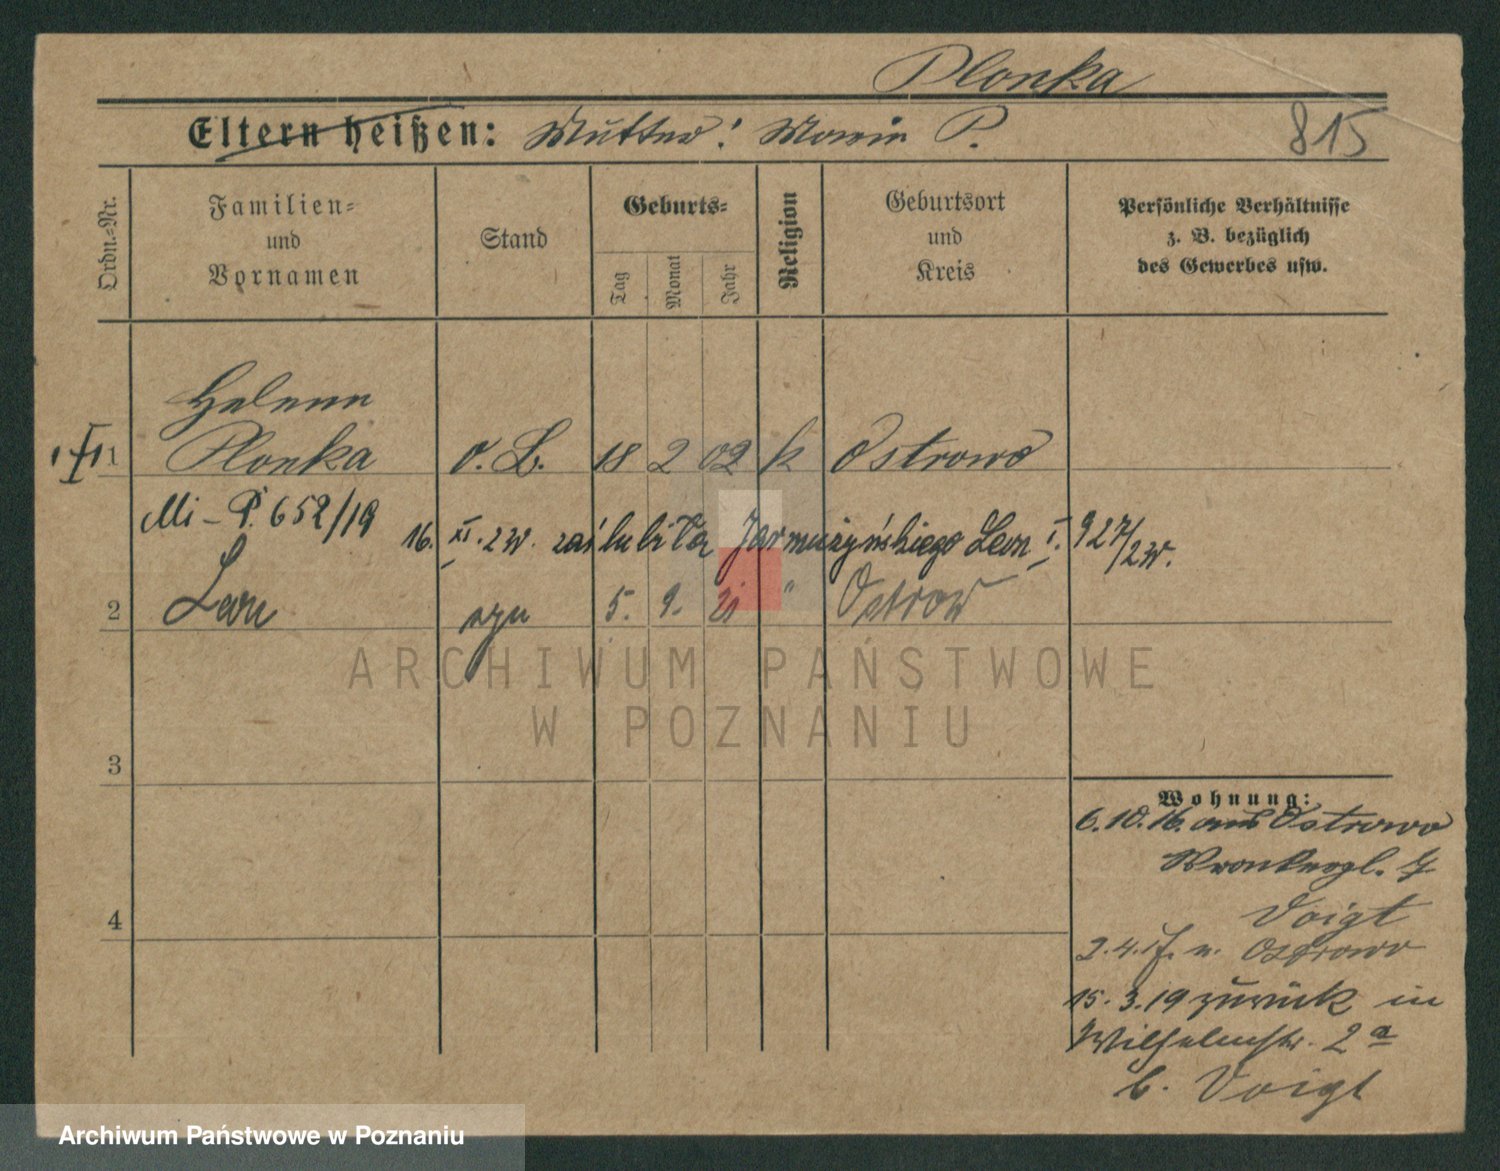 Plonka
Eltern heißen: Mutter: Marie P.
815
Ordn.-Nr.
Familien-
und
Vornamen
Stand
Geburts-
Tag
Monat
Jahr
Religion
Geburtsort
und
Kreis
Persönliche Verhältnisse
z. B. bezüglich
des Gewerbes usw.
Helene
1 Plonka o. B. 18 2 02 k Ostrowo
Mi - P. 652/19
16. XI. 2w. zaślubiła Jarmużyńskiego Leon I. 927/2w.
2 Leon syn 5. 9. 21 " Ostrow
ARCHIWUM PAŃSTWOWE
W POZNANIU
3
4
Wohnung:
6.10.16. aus Ostrowo
Wronkerpl.
Voigt
2.4.17. n. Ostrowo
15.3.19 zurück in
Wilhelmstr. 2a
b. Voigt
Archiwum Państwowe w Poznaniu